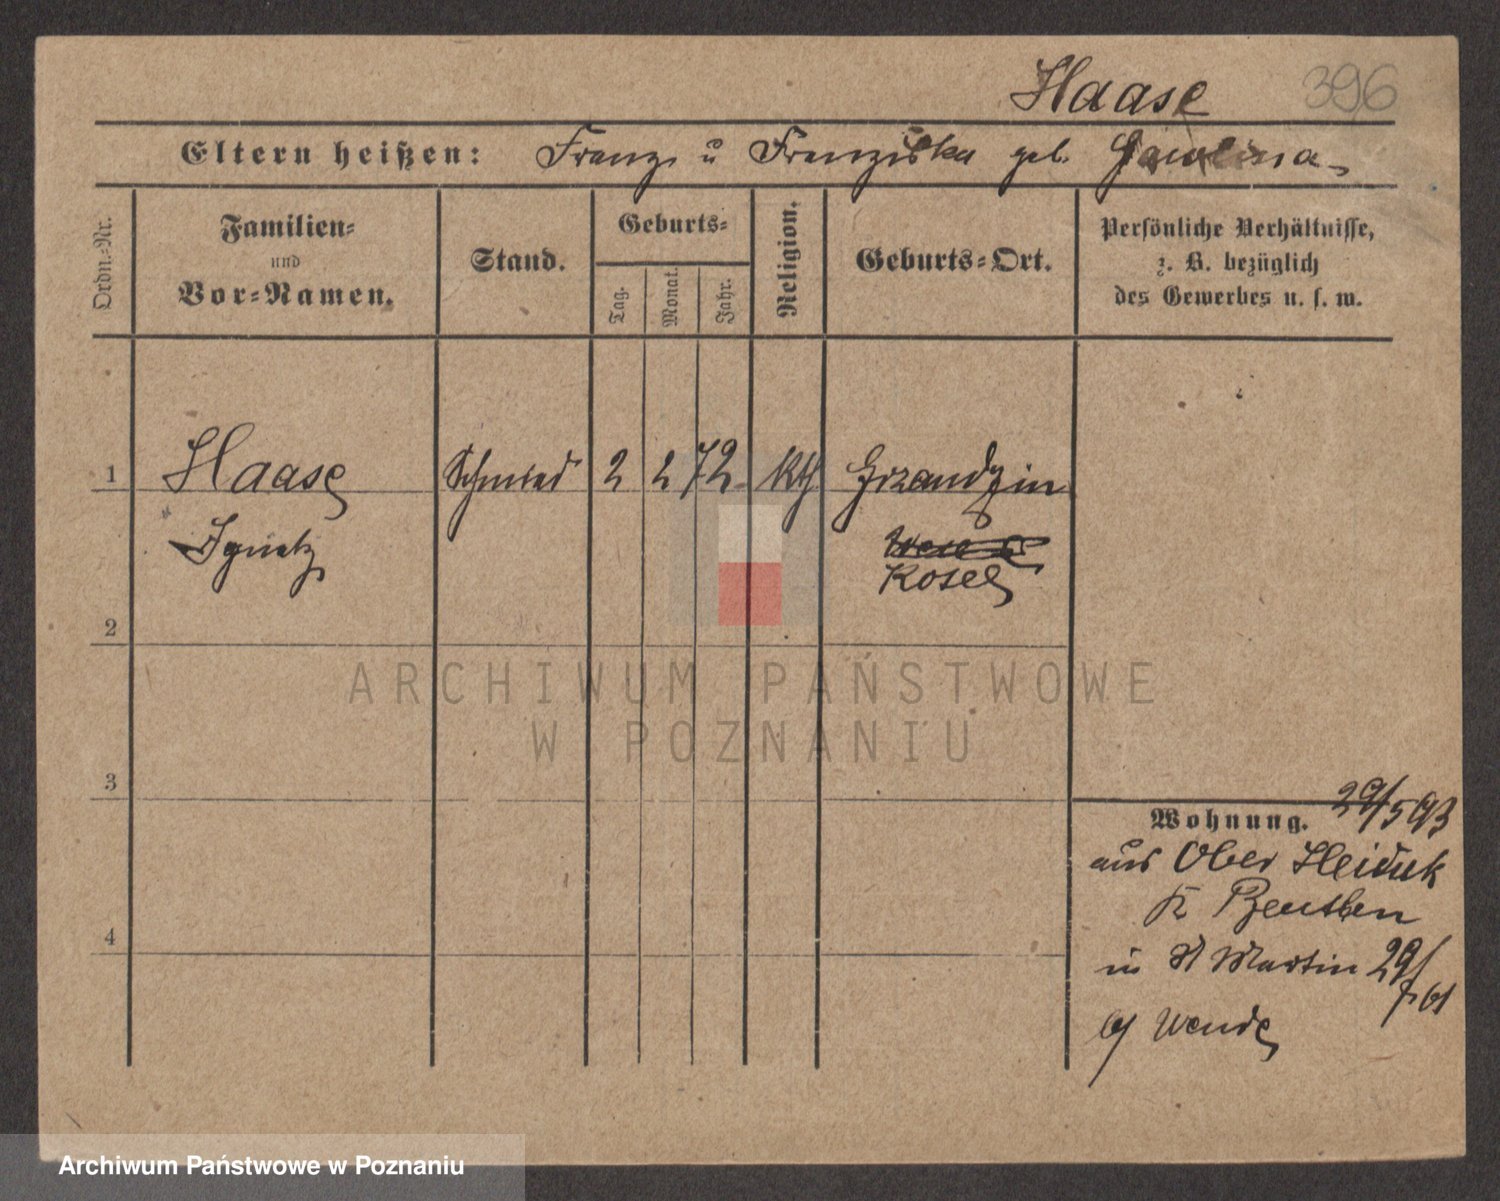 Haase 396
Eltern heißen: Franz u Franziska geb.
Ordn.-Nr.
Familien-
und
Vor-Namen.
Stand.
Geburts-
Tag.
Monat.
Jahr.
Religion.
Geburts-Ort.
Persönliche Verhältnisse,
z. B. bezüglich
des Gewerbes u. s. w.
1 Haase Schmied 2 2 72 kth Grzandzin
Ignatz
Kosel
2
3
4
Wohnung. 29/5 93
aus Ober Heiduk
Beuthen
in St Martin 29/
bei Wende
ARCHIWUM PAŃSTWOWE
W POZNANIU
Archiwum Państwowe w Poznaniu